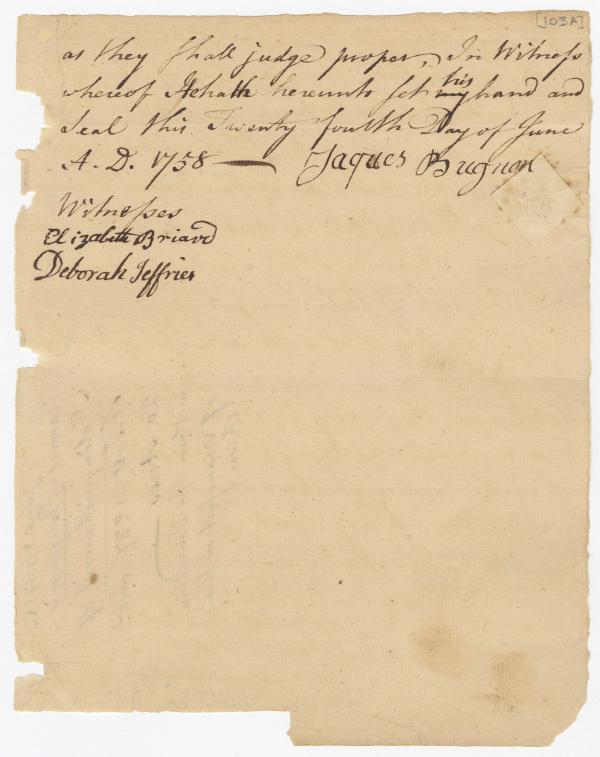 [103A]
as they shall judge proper, In Witness
whereof he hath hereunto set his hand and
Seal this Twenty fourth Day of June
A. D. 1758 — Jaques Bugnon
Witnesses
Elizabeth Briard
Deborah Jeffries